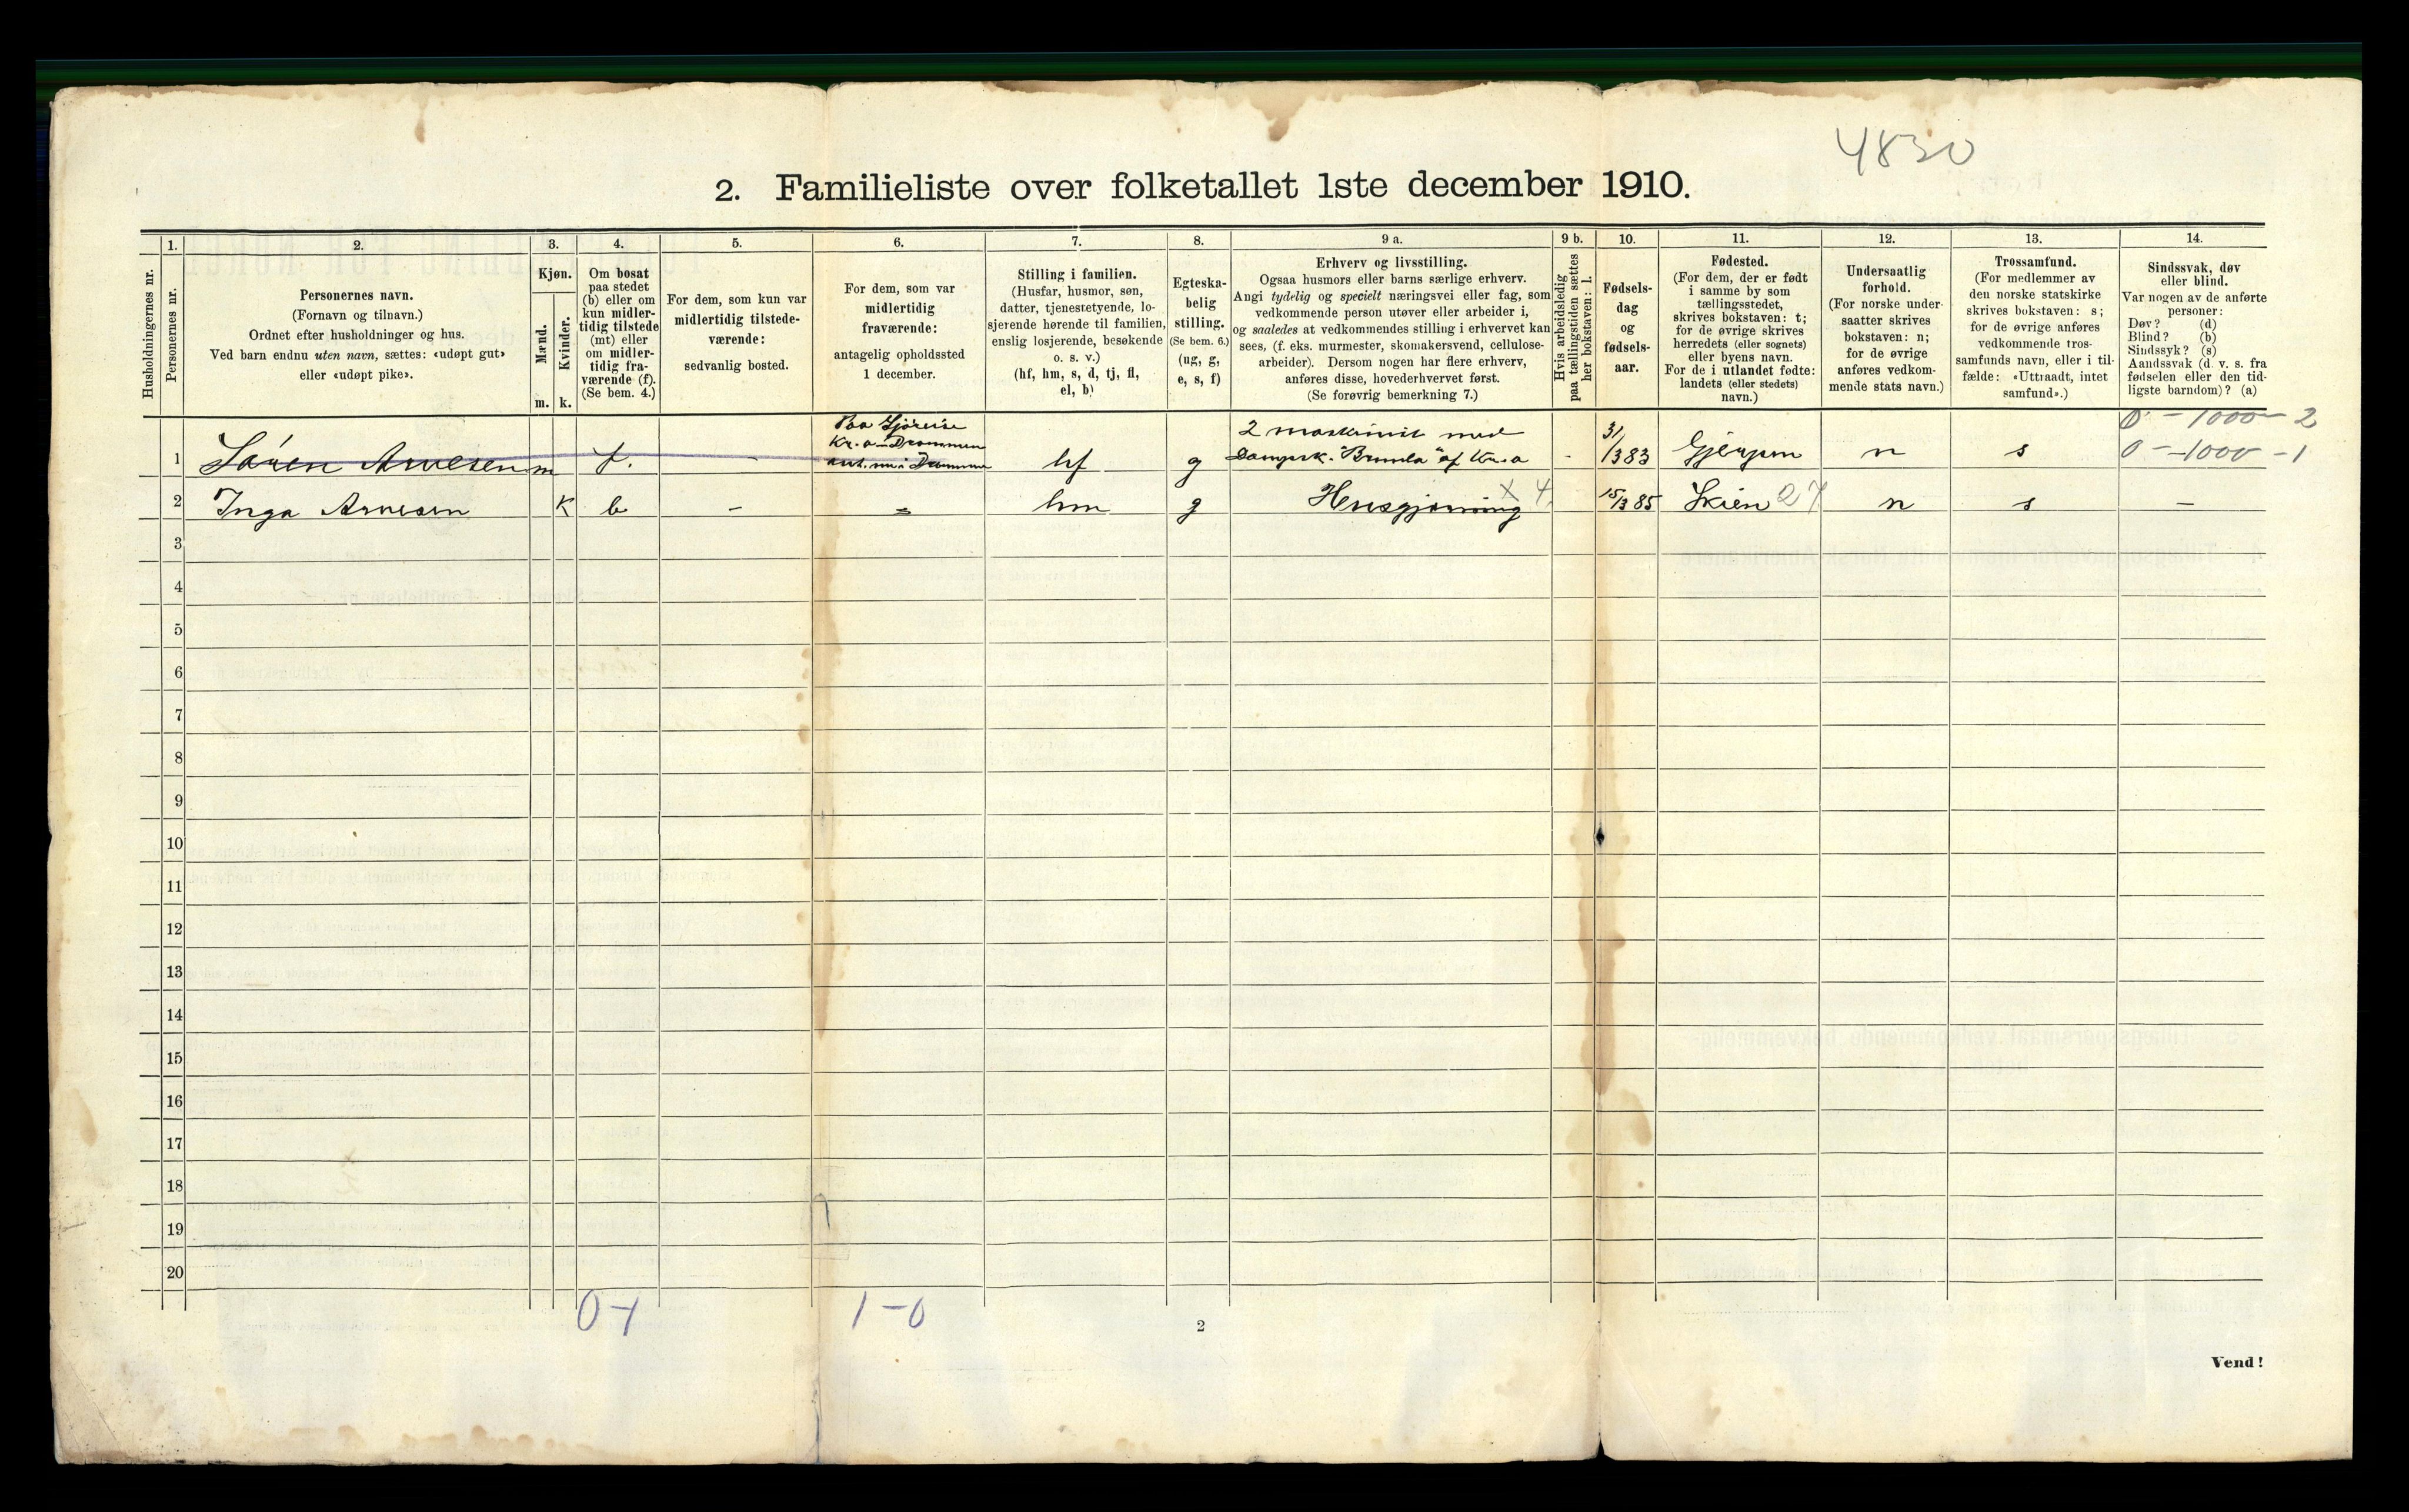 4830
2. Familieliste over folketallet 1ste december 1910.
Husholdningernes nr.
1.
Personernes nr.
2.
Personernes navn.
(Fornavn og tilnavn.)
Ordnet efter husholdninger og hus.
Ved barn endnu uten navn, sættes: «udøpt gut»
eller «udøpt pike».
3.
Kjøn.
Mænd.
Kvinder.
m. k.
4.
Om bosat
paa stedet
(b) eller om
kun midler-
tidig tilstede
(mt) eller
om midler-
tidig fra-
værende (f).
(Se bem. 4.)
5.
For dem, som kun var
midlertidig tilstede-
værende:
sedvanlig bosted.
6.
For dem, som var
midlertidig
fraværende:
antagelig opholdssted
1 december.
7.
Stilling i familien.
(Husfar, husmor, søn,
datter, tjenestetyende, lo-
sjerende hørende til familien,
enslig losjerende, besøkende
o. s. v.)
(hf, hm, s, d, tj, fl,
el, b)
8.
Egteska-
belig
stilling.
(Se bem. 6.)
(ug, g,
e, s, f)
9 a.
Erhverv og livsstilling.
Ogsaa husmors eller barns særlige erhverv.
Angi tydelig og specielt næringsvei eller fag, som
vedkommende person utøver eller arbeider i,
og saaledes at vedkommendes stilling i erhvervet kan
sees, (f. eks. murmester, skomakersvend, cellulose-
arbeider). Dersom nogen har flere erhverv,
anføres disse, hovederhvervet først.
(Se forøvrig bemerkning 7.)
9 b.
Hvis arbeidsledig
paa tællingstiden sættes
her bokstaven: l.
10.
Fødsels-
dag
og
fødsels-
aar.
11.
Fødested.
(For dem, der er født
i samme by som
tællingsstedet,
skrives bokstaven: t;
for de øvrige skrives
herredets (eller sognets)
eller byens navn.
For de i utlandet fødte:
landets (eller stedets)
navn.)
12.
Undersaatlig
forhold.
(For norske under-
saatter skrives
bokstaven: n;
for de øvrige
anføres vedkom-
mende stats navn.)
13.
Trossamfund.
(For medlemmer av
den norske statskirke
skrives bokstaven: s;
for de øvrige anføres
vedkommende tros-
samfunds navn, eller i til-
fælde: «Uttraadt, intet
samfund».)
14.
Sindssvak, døv
eller blind.
Var nogen av de anførte
personer:
Døv? (d)
Blind? (b)
Sindssyk? (s)
Aandssvak (d. v. s. fra
fødselen eller den tid-
ligste barndom)? (a)
0 - 1000 - 2
1 Søren Arnesen m f. - Paa Sjøreise Kr.a-Drammen ant. nu i Drammen hf g 2 maskinist med Dampsk. "Brunla" af Kr.a - 31/3 83 Gjerpen n s 0 - 1000 - 1
2 Inga Arnesen K b - = hm g Husgjerning x 4 15/3 85 Skien 27 n s -
3
4
5
6
7
8
9
10
11
12
13
14
15
16
17
18
19
20
0-1
1-0
2
Vend!